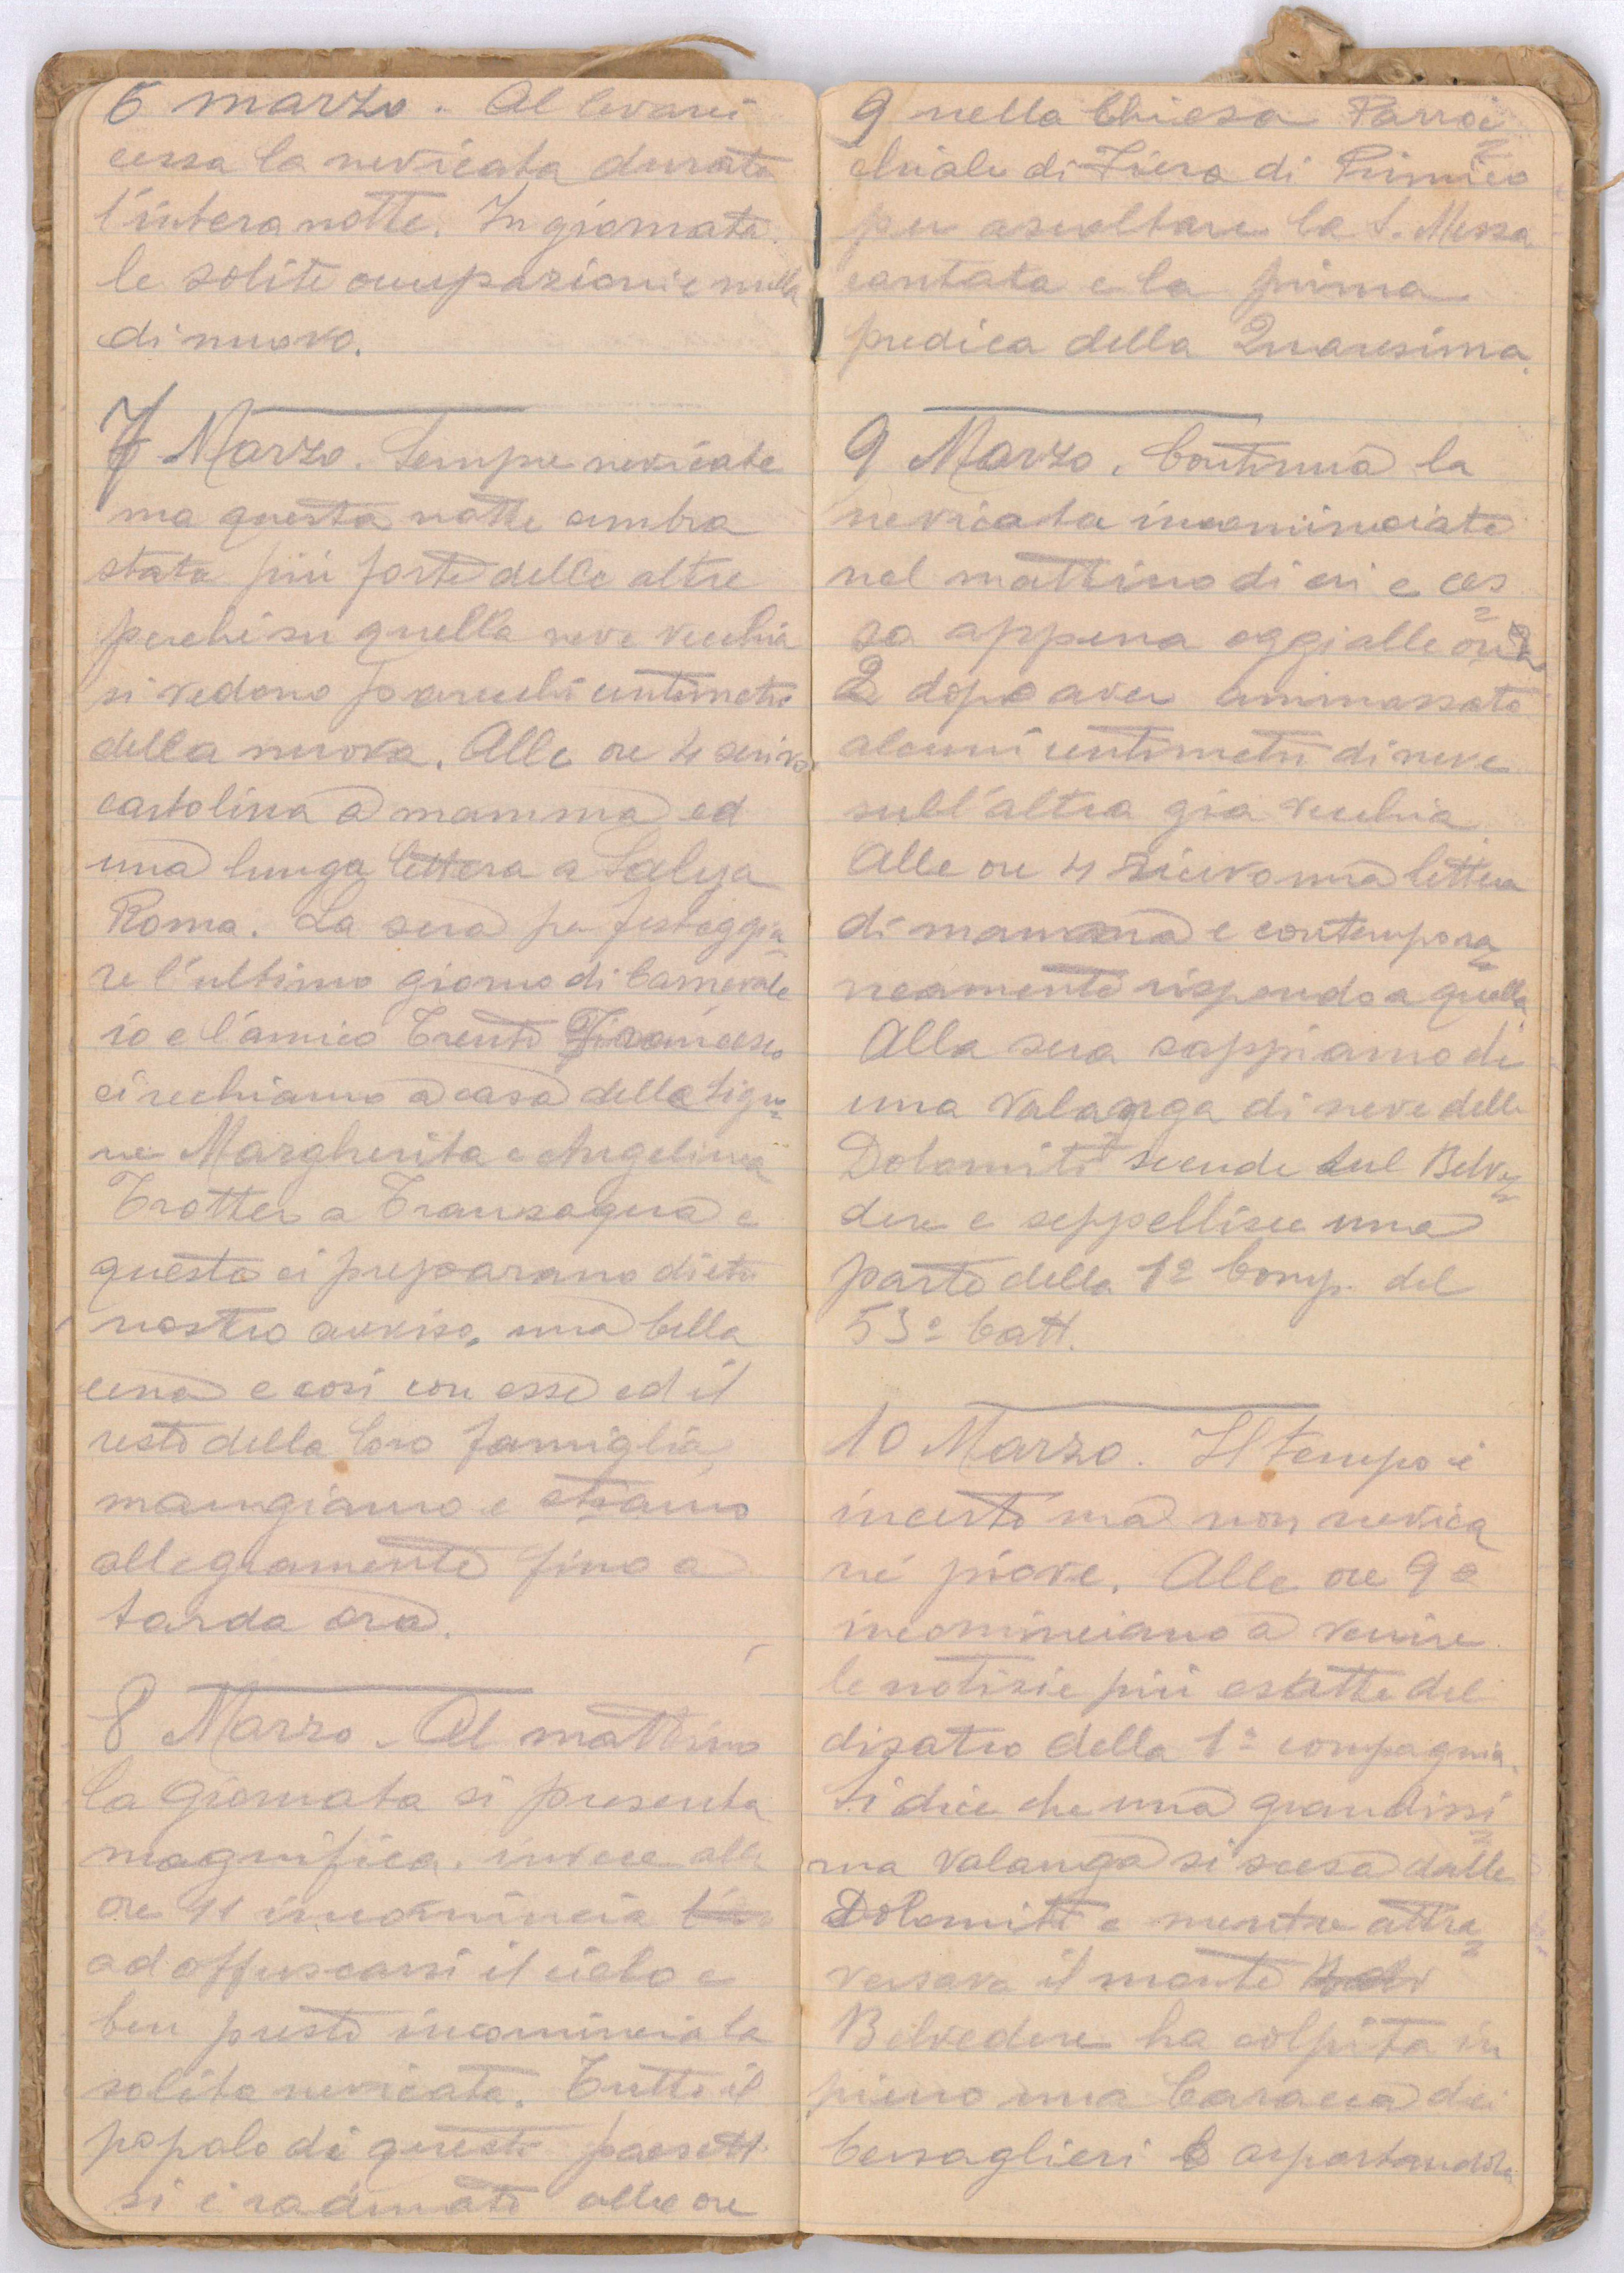 6 marzo. Al levarci
cessa la nevicata durata
l'intera notte. In giornata
le solite occupazioni e nulla
di nuovo.
7 Marzo. Sempre nevicate
ma questa notte sembra
stata più forte delle altre
perchè su quella neve vecchia
si vedono parecchi centimetri
della nuova. Alle ore 4 scrivo
cartolina a mamma ed
una lunga lettera a
Roma. La sera per festeggia
re l'ultimo giorno di Carnevale
io e l'amico Trento Francesco
ci rechiamo a casa delle Signo
re Margherita e Angelina
Trotter a Transaqua e
queste ci preparano dietro
nostro avviso, una bella
cena e così con esse ed il
resto della loro famiglia
mangiamo e stiamo
allegramente fino a
tarda ora.
8 Marzo. Al mattino
la giornata si presenta
magnifica, invece alle
ore 11 incomincia
ad offuscarsi il cielo e
ben presto incomincia la
solita nevicata. Tutto il
popolo di questi paesetti
si è radunato alle ore
9 nella Chiesa Parroc
chiale di Fiera di Primiero
per ascoltare la S. Messa
cantata e la prima
predica della Quaresima.
9 Marzo. Continua la
nevicata incominciata
nel mattino di ieri e ces
sa appena oggi alle ore
2 dopo aver ammassato
alcuni centimetri di neve
sull'altra già vecchia.
Alle ore 4 ricevo una lettera
di mamma e contempora
neamente rispondo a quella
Alla sera sappiamo di
una valanga di neve delle
Dolomiti scende sul Belve
dere e seppellisce una
parte della 1ª Comp. del
53º batt.
10 Marzo. Il tempo è
incerto ma non nevica
nè piove. Alle ore 9
incominciano a venire
le notizie più esatte del
dizatro della 1ª compagnia.
Si dice che una grandissi
ma valanga si scesa dalle
Dolomiti e mentre attra
versava il monte Belv
Belvedere ha colpita in
pieno una baracca dei
bersaglieri e asportandola